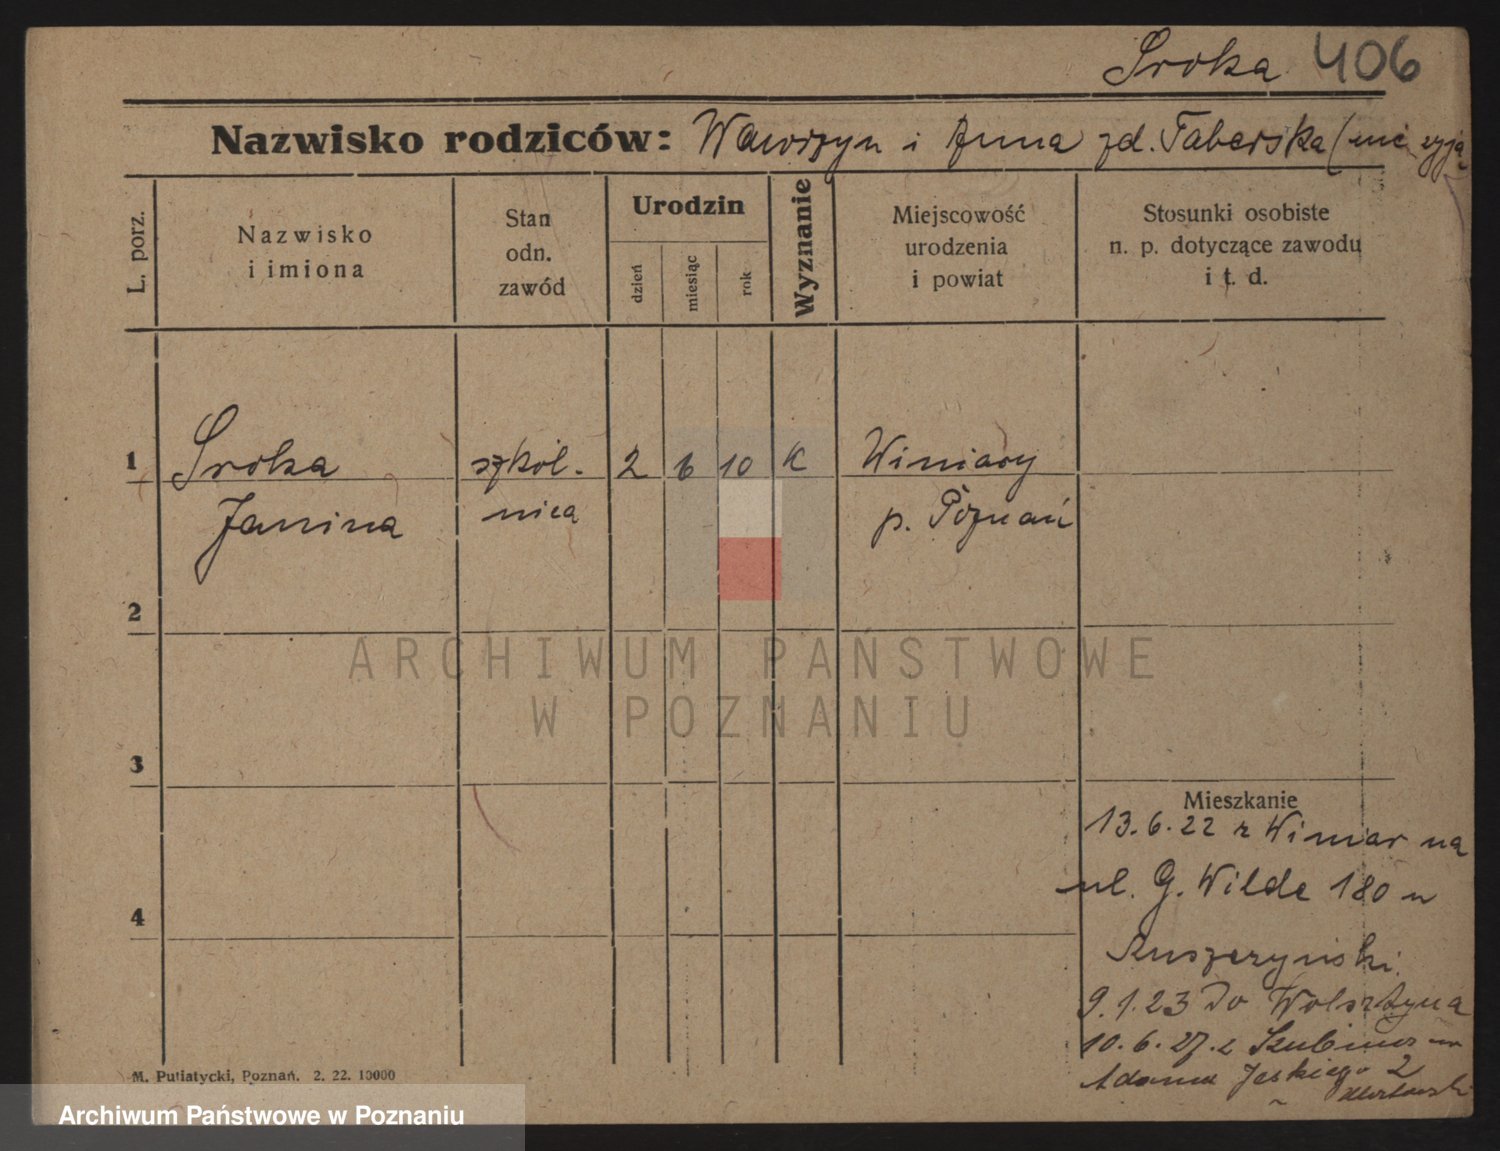 Sroka 406
Nazwisko rodziców: Wawrzyn i Anna zd. Taberska (nie żyją
L. porz.
Nazwisko
i imiona
Stan
odn.
zawód
Urodzin
dzień
miesiąc
rok
Wyznanie
Miejscowość
urodzenia
i powiat
Stosunki osobiste
n. p. dotyczące zawodu
i t. d.
1 Sroka szkól- 2 6 10 K Winiary
Janina nica p. Poznań
2
3
4
ARCHIWUM PAŃSTWOWE
W POZNANIU
Mieszkanie
13.6.22 z Winiar na
ul. G. Wilde 180 u
9.1.23 do Wolsztyna
10.6.27. z Szubina
2
M. Putiatycki, Poznań. 2. 22. 10000
Archiwum Państwowe w Poznaniu